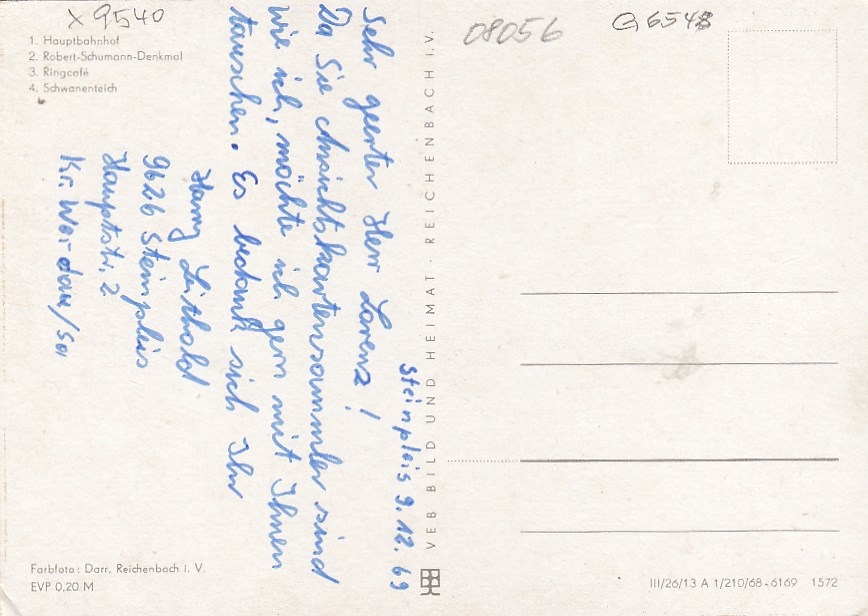 x 9540
1. Hauptbahnhof
2. Robert-Schumann-Denkmal
3. Ringcafé
4. Schwanenteich
Steinpleis 9.12.69
Sehr geerter Herr Lorenz!
Da Sie Ansichtskartensammler sind
wie ich, möchte ich gern mit Ihnen
tauschen. Es bedankt sich Ihr
Harry
9626 Steinpleis
Hauptstr. 2
Kr. Werdau/Sa
Farbfoto: Darr, Reichenbach i. V.
EVP 0,20 M
VEB BILD UND HEIMAT · REICHENBACH I.V.
08056
G 6548
III/26/13 A 1/210/68-6169 1572